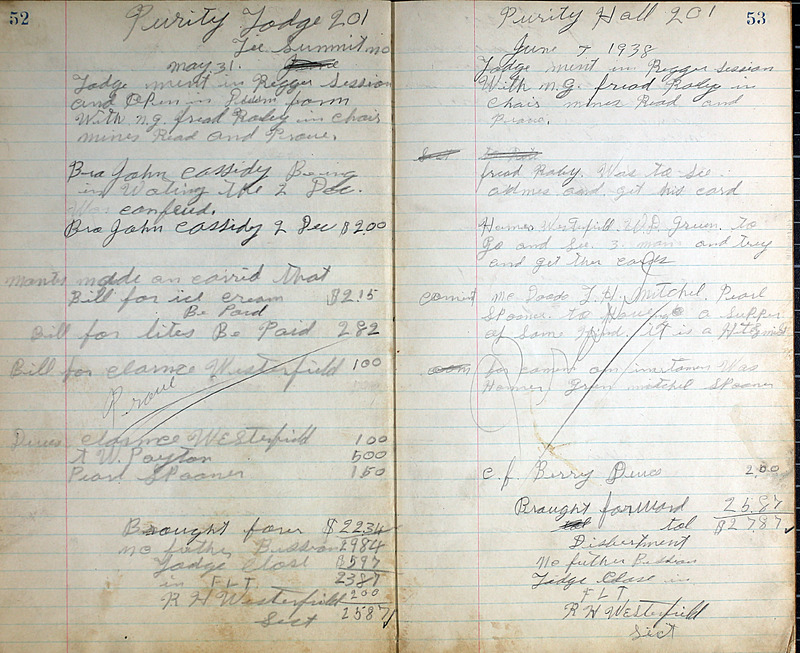 52
Purity Lodge 201
Lee Summit mo
May 31.
Lodge ment in Regger Session
and Open in Duum form
With n.g. fried Raby in chair
mines Read and Prove.
Bro John Cassidy Being
in Wating the 2 Dec.
Was confeud.
Bro John Cassidy 2 Dec $2.00
mants made an carrid that
Bill for ice cream $2.15
Be Paid
Bill for lites Be Paid 282
Bill for Clarnce Westerfield 100
Dues Clarnce Westerfield 100
A W. Payton 500
Pearl Spooner 150
Brought forer $2234
no futher Bission 2984
Lodge Close $597
in F L T 2387
R H Westerfield 200
Sect 2587
53
Purity Hall 201
June 7, 1938
Lodge ment in Regger Session
With n.g. fried Raby in
chair mines Read and
Prove.
fried Raby. Was to See
and get his card
Homer Westerfield. W.D. Gruen. to
Go and See. 3. man and trey
and get ther cards
comit Mc Dodo L. H. Mitchel. Pearl
Spooner. to Have a Supper
of Some Kind.
com for comm on
Homer Gren mitchel Spooner
C. f. Berry Dues 2.00
Brought forward 25.87
tol $27.87
Disbertment
No futher Bission
Lodge Close in
F L T,
R H Westerfield
Sect